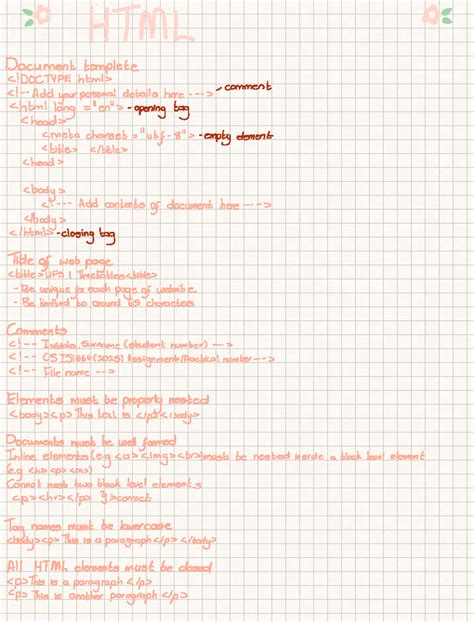 HTML
Document template
<!DOCTYPE html>
<!-- Add your personal details here ---> -comment
<html lang ="en"> -opening tag
<head>
<meta charset ="utf-8"> -empty element
<title> </title>
<head>
<body>
<!--- Add contents of document here --->
</body>
</html> -closing tag
Title of web page
<title>UFS | Timetables<title>
- Be unique for each page of website
- Be limited to around 65 characters
Comments
<!-- Initials, Surname (student number) -->
<!-- CSIS1664(2025) Assignment/Practical number-->
<!-- File name -->
Elements must be properly nested
<body><p> This text is </p></body>
Documents must be well formed
Inline elements (e.g <a><img><br>) must be nested inside a block level element
(e.g <h> <p>
Cannot nest two block level elements
<p><hr></p> incorrect
Tag names must be lowercase
<body><p> This is a paragraph </p> </body>
All HTML elements must be closed
<p>This is a paragraph </p>
<p> This is another paragraph </p>